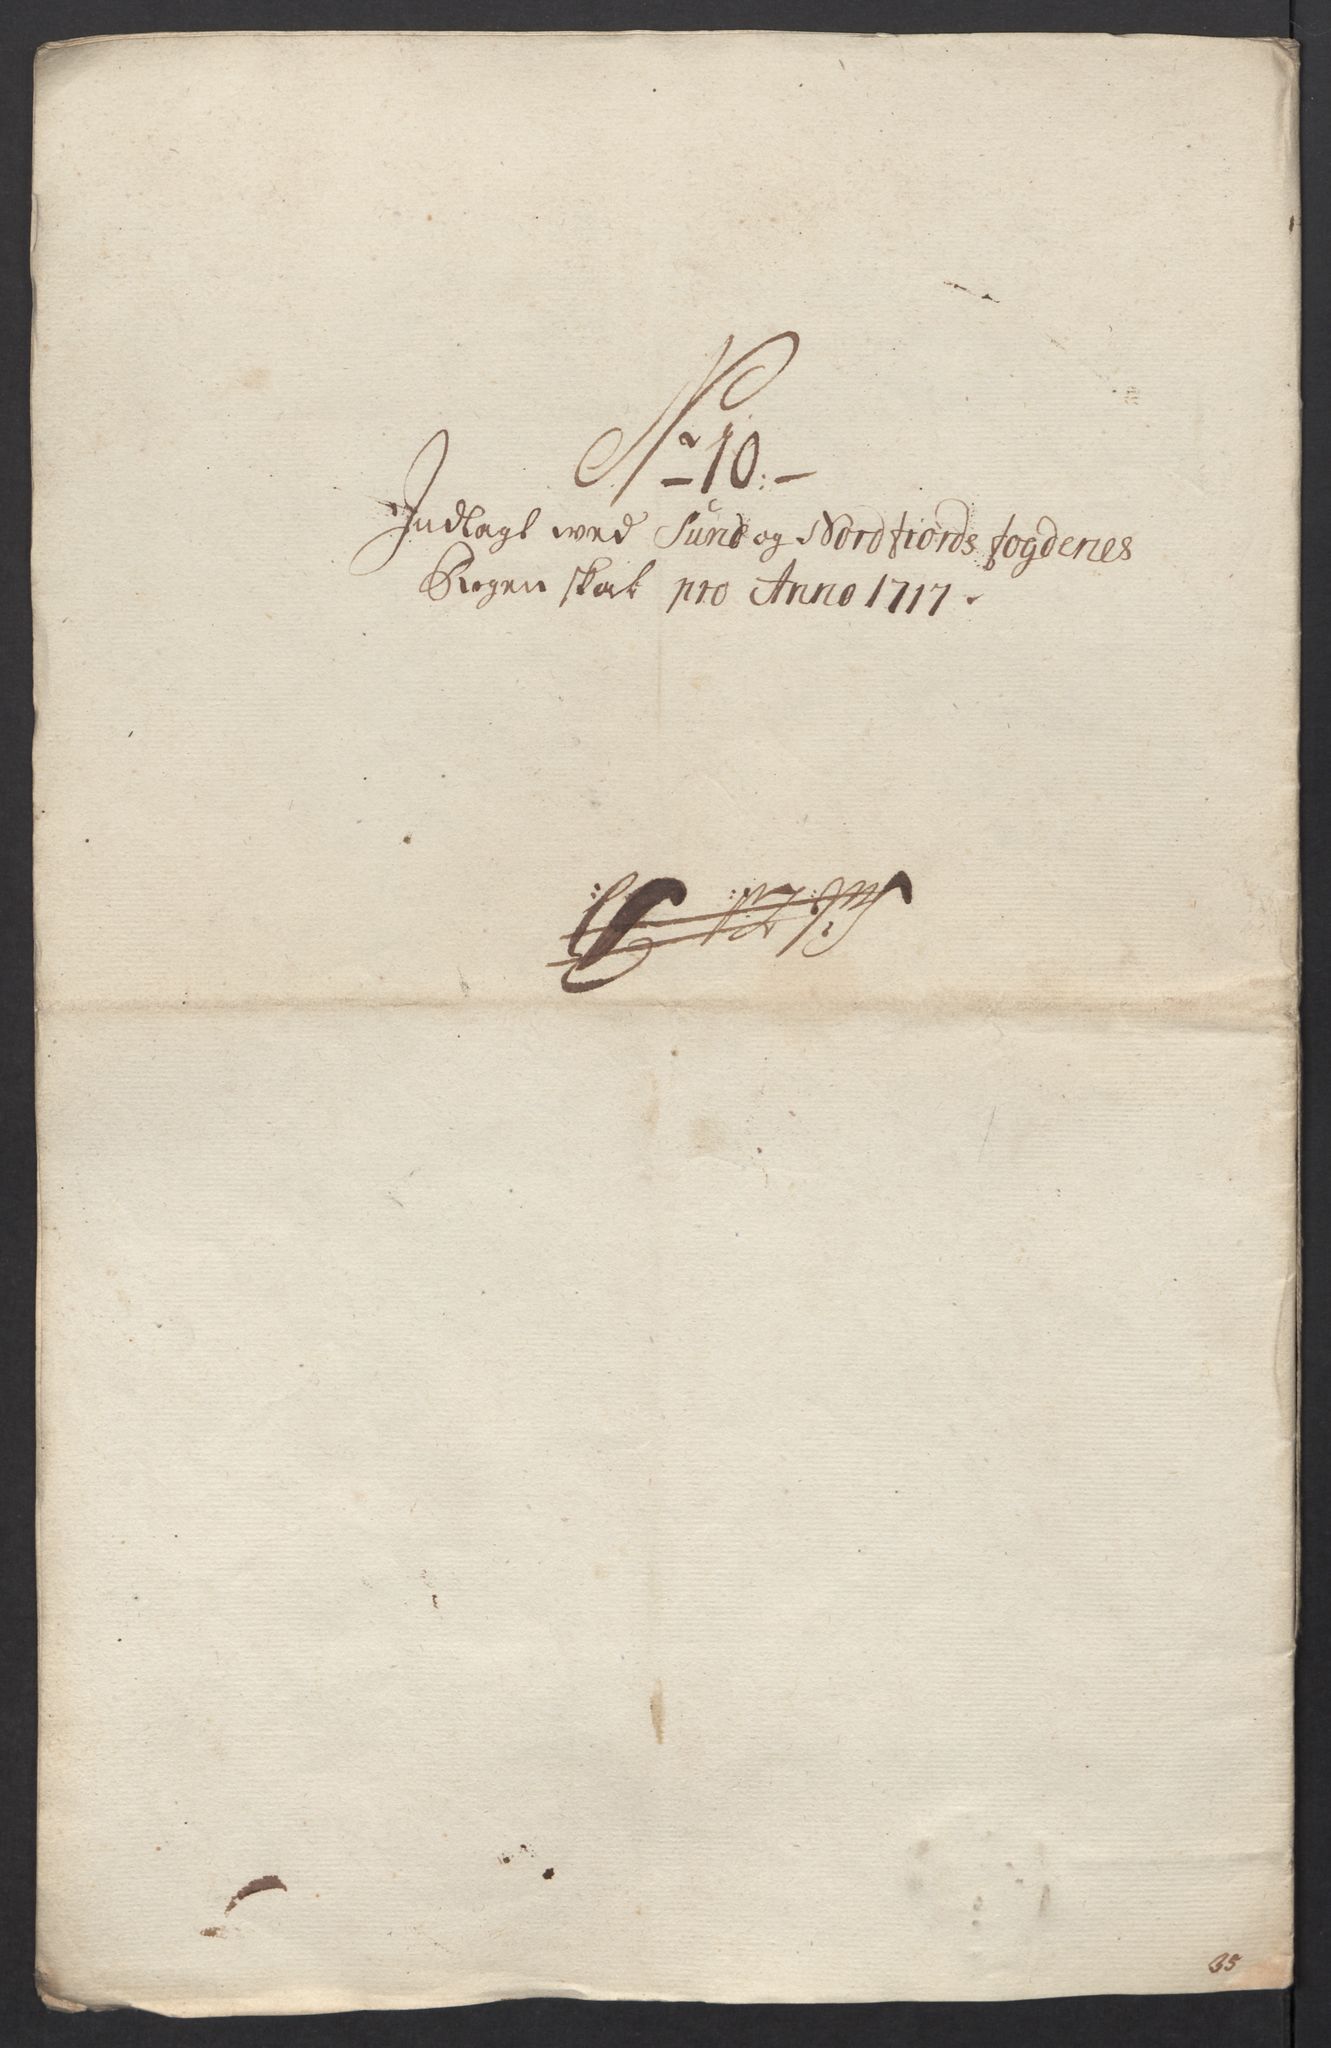 No 10:
Indlagt wed Sund og Nordfiords fogderies
Regenskab pro Anno 1717.
35